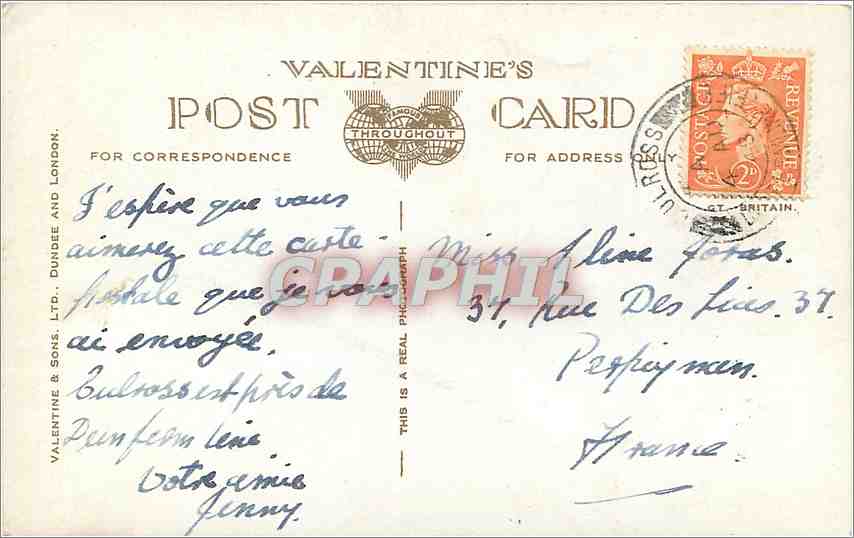 VALENTINE'S
POST CARD
FAMOUS
THROUGHOUT
THE WORLD
FOR CORRESPONDENCE
FOR ADDRESS ONLY
J'espère que vous
aimerez cette carte-
postale que je vous
ai envoyée.
Culross est près de
Dunfermline.
Votre amie
Jenny.
Miss Aline
37, Rue Des 37.
Perpignan.
France.
VALENTINE & SONS. LTD., DUNDEE AND LONDON.
THIS IS A REAL PHOTOGRAPH
POSTAGE
REVENUE
2D
GT. BRITAIN.
CULROSS
CPAPHIL